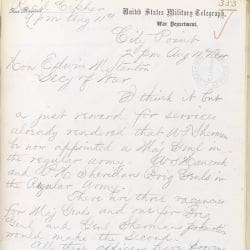 Cipher
353
United States Military Telegraph,
War Department.
9 pm Aug 11th
City Point
2 pm Aug 10th
Hon Edwin M Stanton
Secy of War
I think it but
a just reward for services
already rendered that W T Sherman
be now appointed a Maj Genl in
the regular army W S Hancock
and P. H Sheridan Brig Genls in
the regular Army
There are three vacancies
for Maj Genls and one for Brig
Genl and Genl Shermans promotion
would make the second
All these Officers have proven